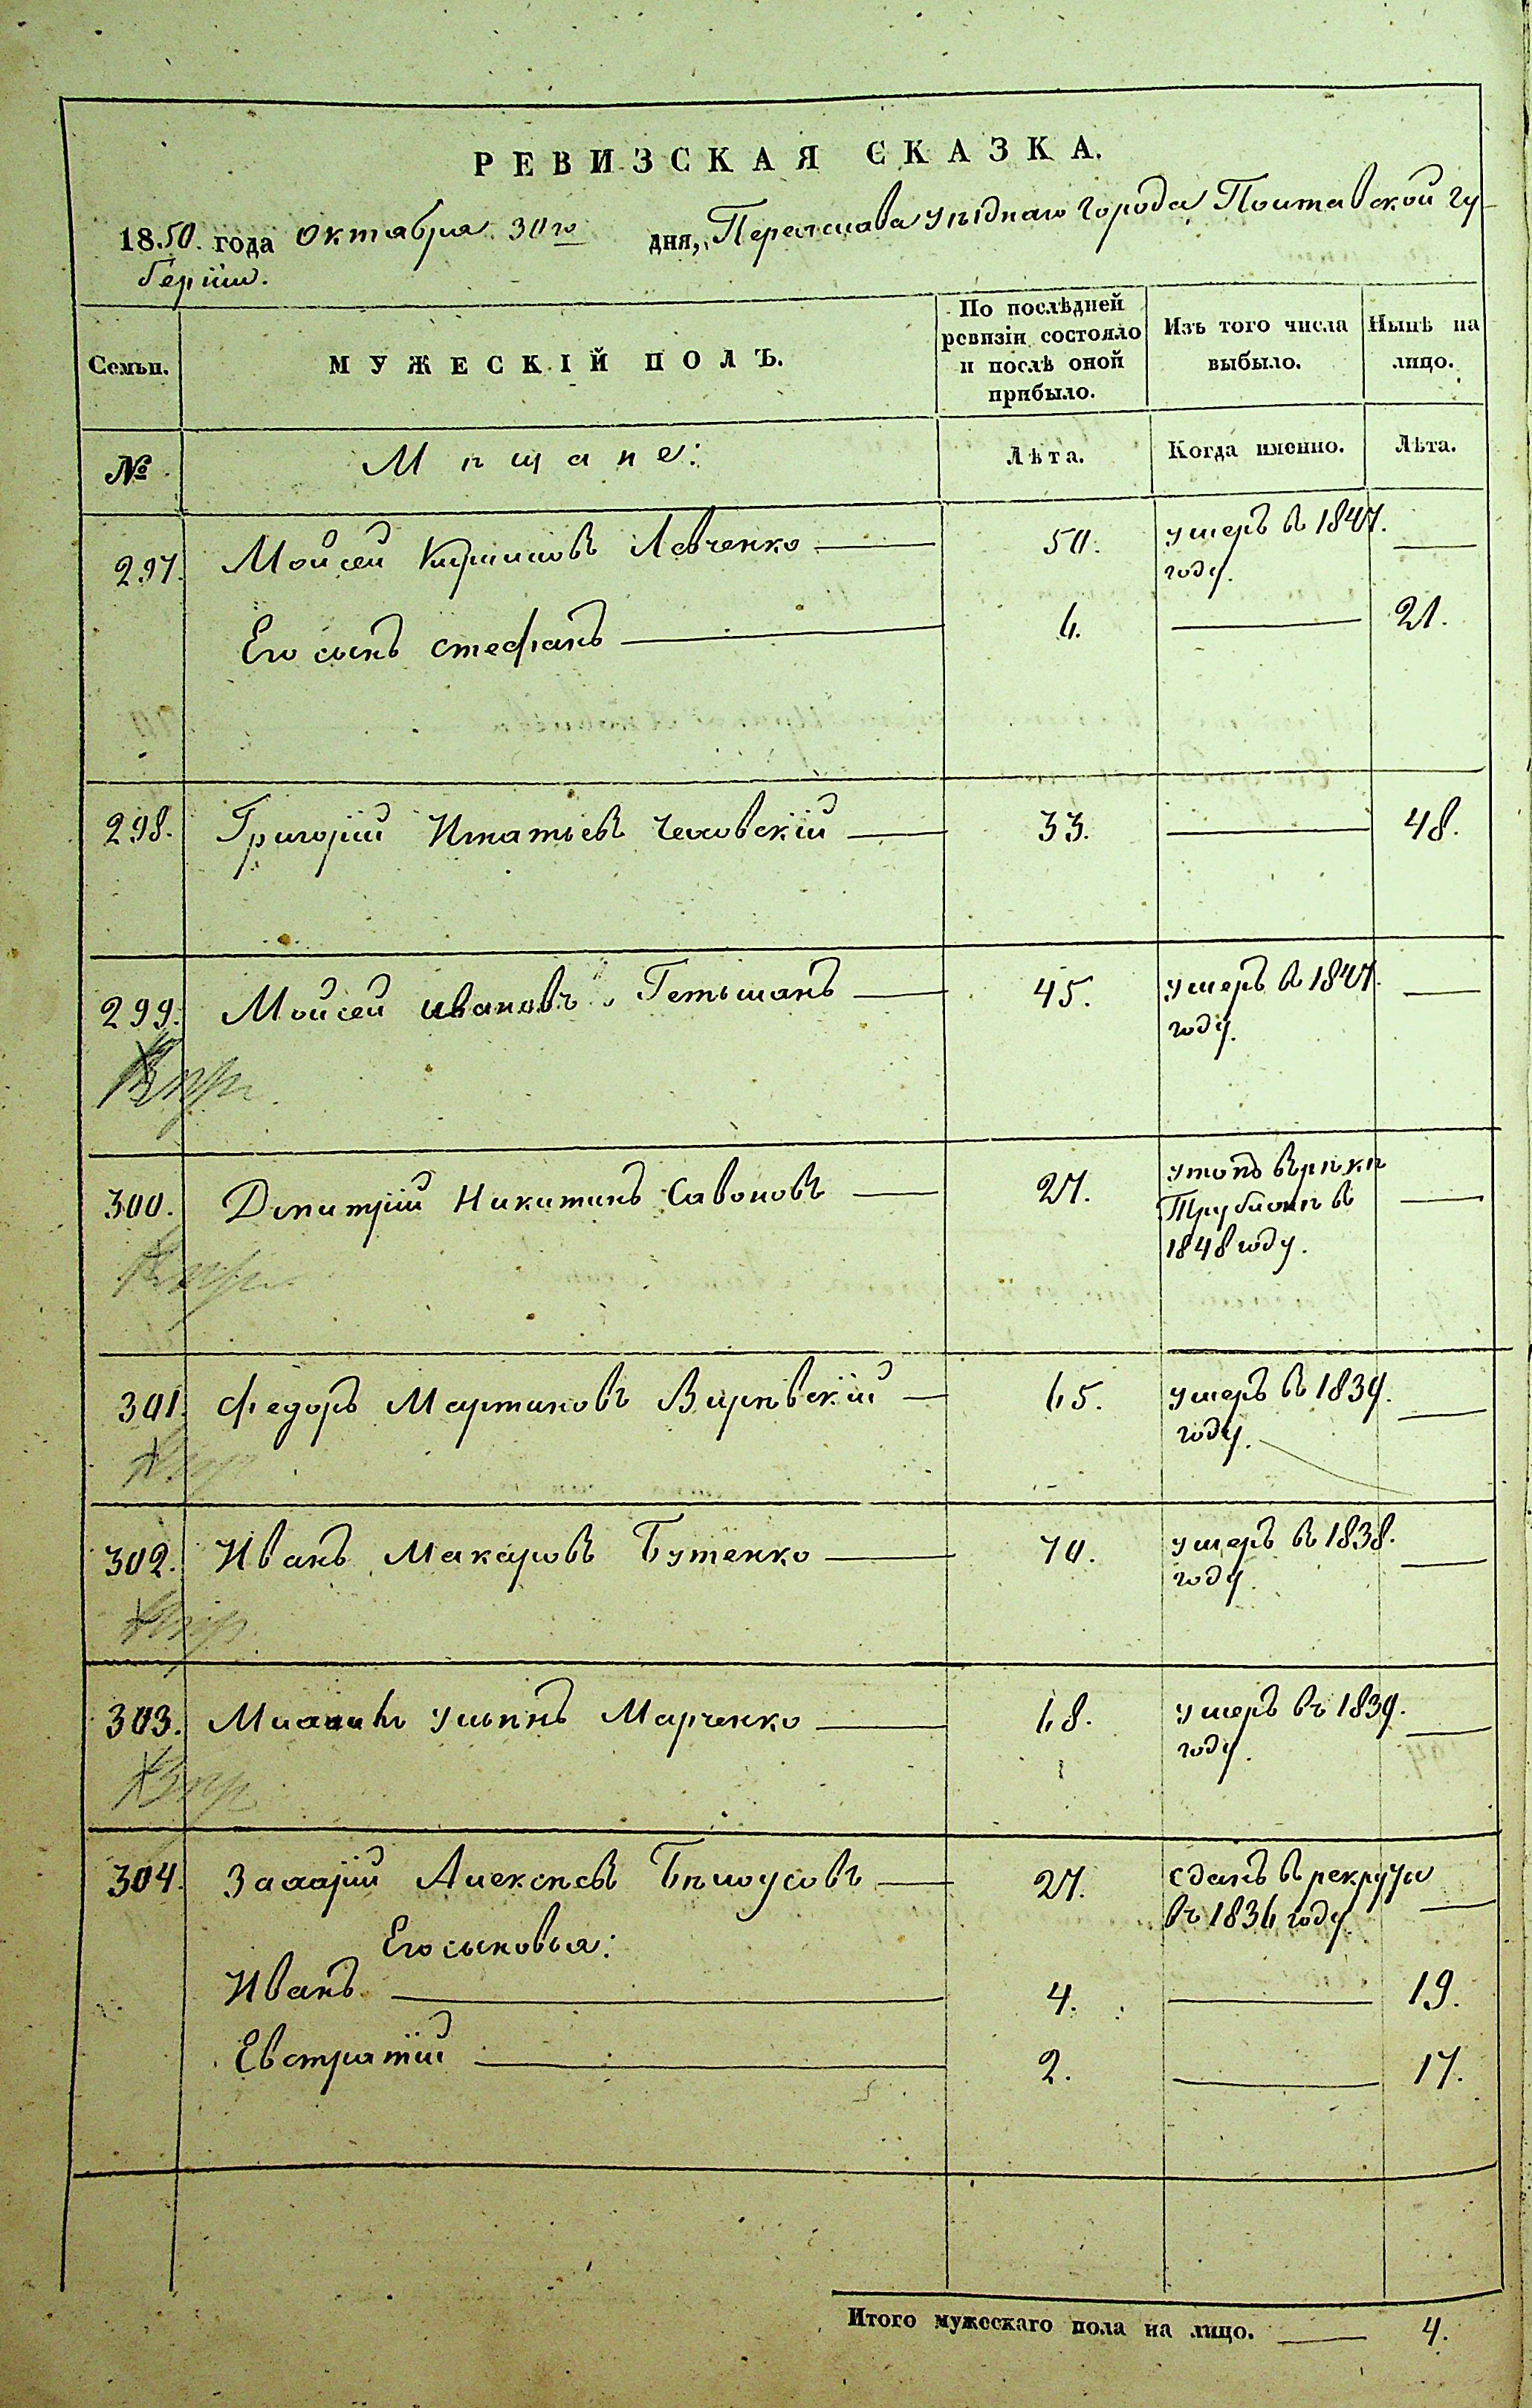 РЕВИЗСКАЯ СКАЗКА.
1850. года Октября 30го дня, Переяслава уѣзднаго города Полтавской гу-
берніи.
Семьи. МУЖЕСКІЙ ПОЛЪ. По послѣдней ревизіи состояло и послѣ оной прибыло. Изъ того числа выбыло. Нынѣ на лицо.
№ Мѣщане: Лѣта. Когда именно. Лѣта.
297. Мойсей Кириловъ Левченко 50. умеръ в 1847.
году.
Его сынъ Стефанъ 6. 21.
298. Григорій Игнатьевъ Чеховскій 33. 48.
299. Мойсей Ивановъ Гетьманъ 45. умеръ в 1847.
году.
300. Дмитрій Никитинъ Савоновъ 27. утопъ врѣкѣ
Трубложѣ в
1848 году.
301. Федоръ Мартиновъ Вирѣвскій 65. умеръ в 1839.
году.
302. Иванъ Макаровъ Бутенко 70. умеръ в 1838.
году.
303. Ульянъ Марченко 68. умеръ въ 1839.
году.
304. Захарій Алексѣевъ Бѣлоусовъ 27. сданъ в рекруты
въ 1836 году.
Его сыновья:
Иванъ 4. 19.
Евстратій 2. 17.
Итого мужескаго пола на лицо. 4.